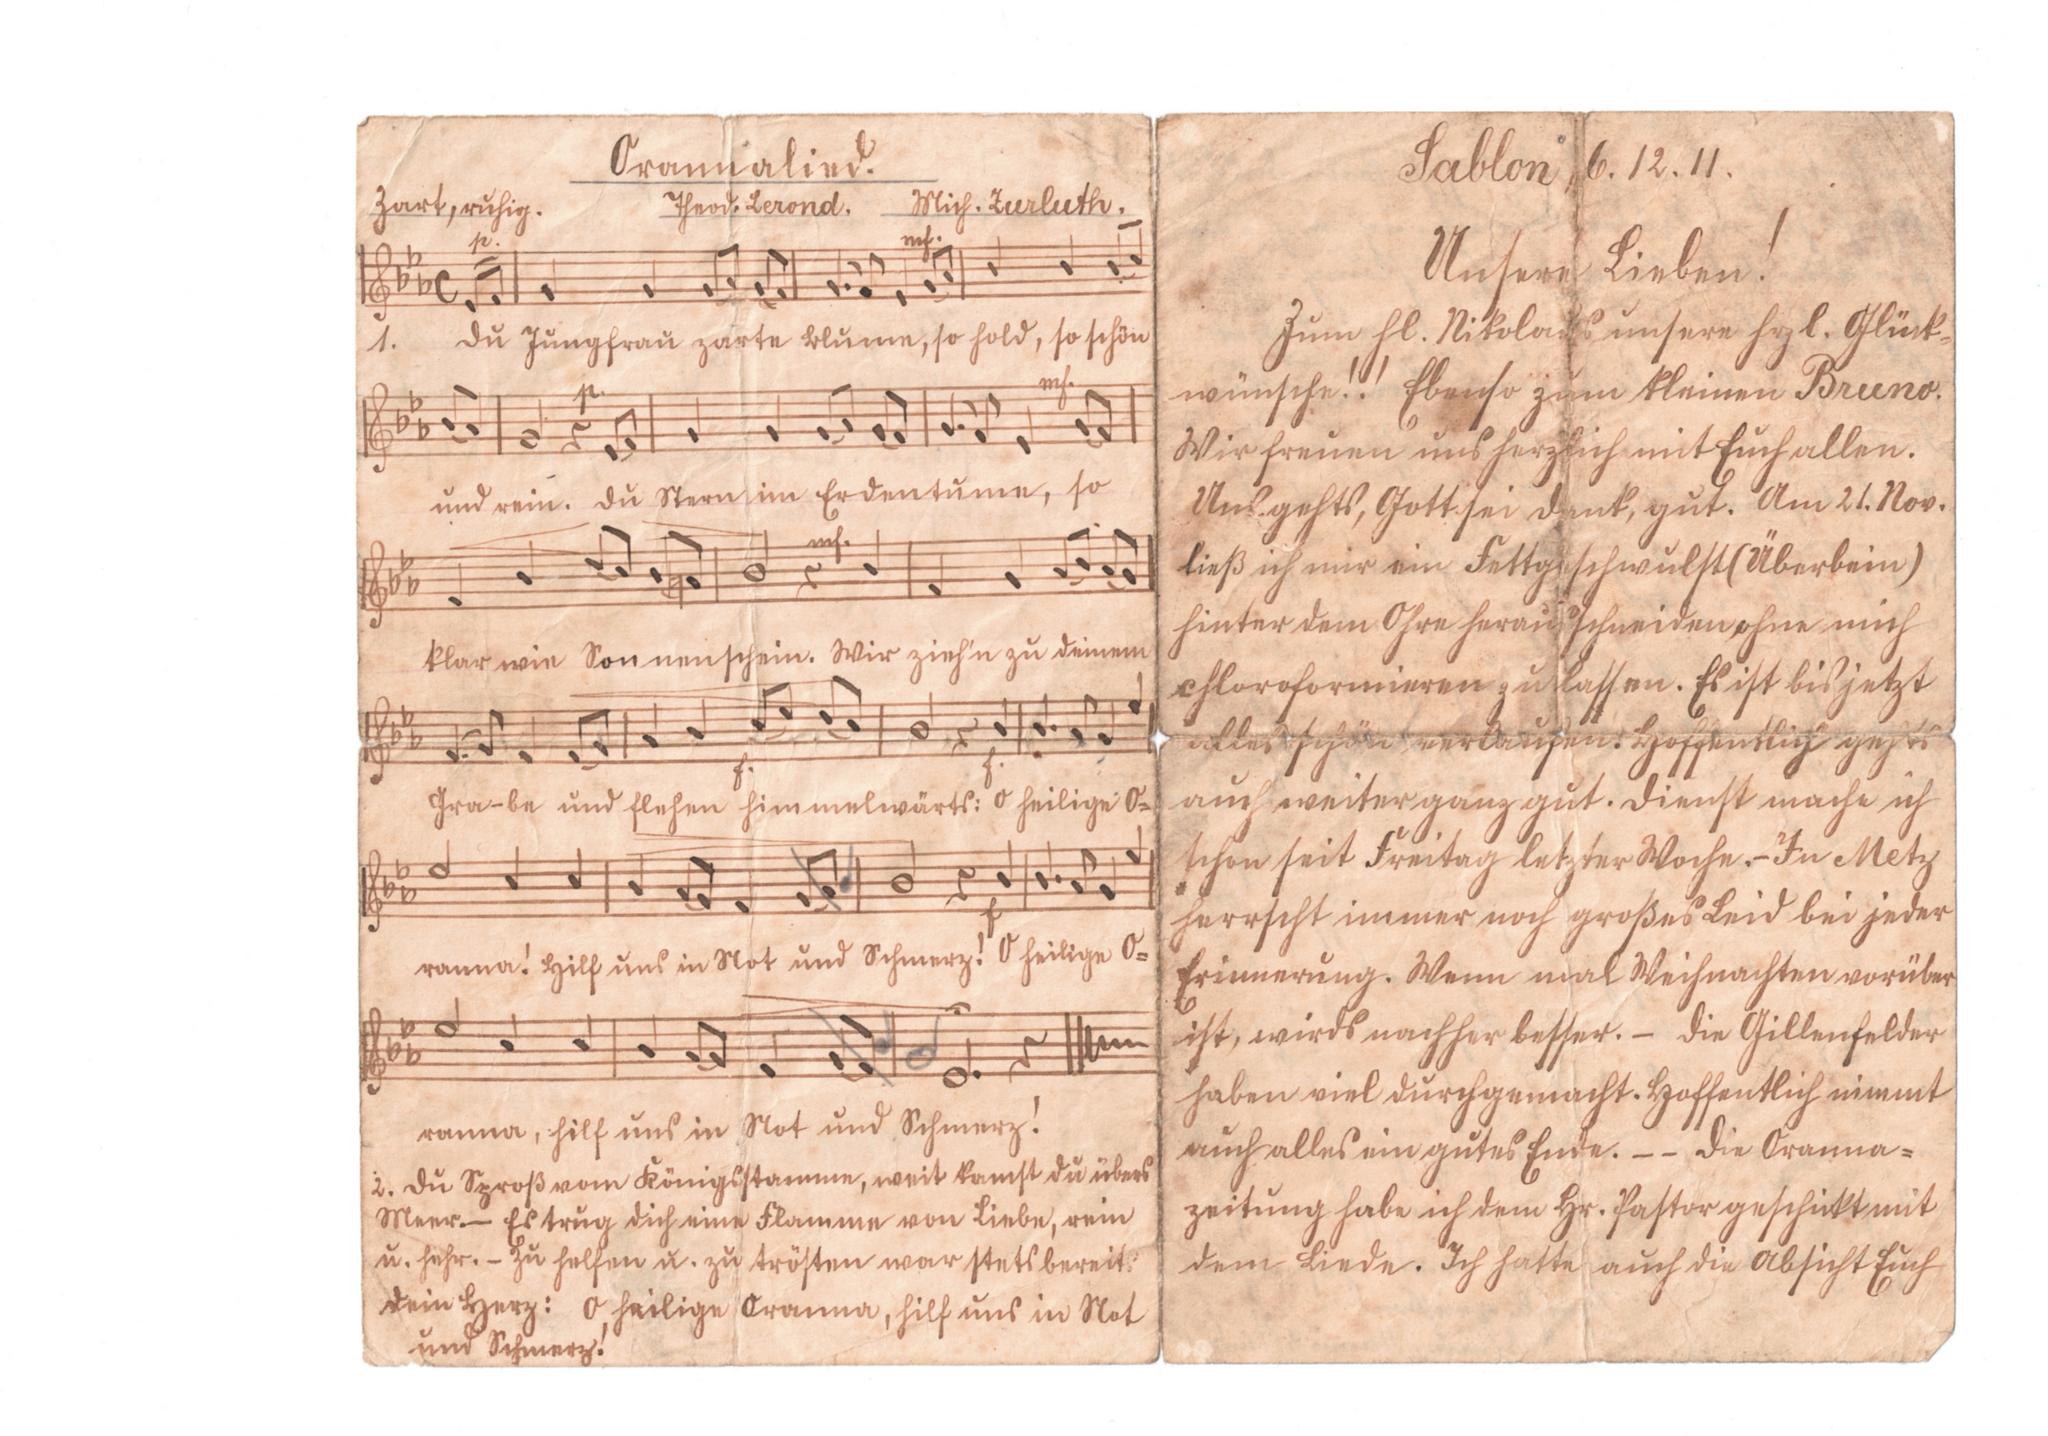 Orannalied.
Zart, ruhig. Theod. Lerond. Mich. Zurluth.
p. mf.
1. Du Jungfrau zarte Blume, so hold, so schön
p. mf.
und rein. Du Stern im Erdentume, so
mf.
klar wie Sonnenschein. Wir zieh'n zu deinem
f. f.
Gra-be und flehen himmelwärts: O heilige O=
f
ranna! Hilf uns in Not und Schmerz! O heilige O=
ranna, hilf uns in Not und Schmerz!
2. Du Sproß vom Königsstamme, weit kamst du übers
Meer. — Es trug dich eine Flamme von Liebe, rein
u. hehr. – Zu helfen u. zu trösten war stets bereit
dein Herz: O heilige Oranna, hilf uns in Not
und Schmerz!
Sablon, 6. 12. 11.
Unsere Lieben!
Zum hl. Nikolaus unsere hrzl. Glück-
wünsche!! Ebenso zum kleinen Bruno.
Wir freuen uns herzlich mit Euch allen.
Uns gehts, Gott sei Dank, gut. Am 21. Nov.
ließ ich mir ein Fettgeschwulst (Überbein)
hinter dem Ohre herausschneiden ohne mich
chloroformieren zu lassen. Es ist bis jetzt
alles schön verlaufen. Hoffentlich gehts
auch weiter ganz gut. Dienst mache ich
schon seit Freitag letzter Woche. – In Metz
herrscht immer noch großes Leid bei jeder
Erinnerung. Wenn mal Weihnachten vorüber
ist, wirds nachher besser. – Die Gillenfelder
haben viel durchgemacht. Hoffentlich nimmt
auch alles ein gutes Ende. – – Die Oranna=
zeitung habe ich dem Hr. Pastor geschickt mit
dem Liede. Ich hatte auch die Absicht Euch